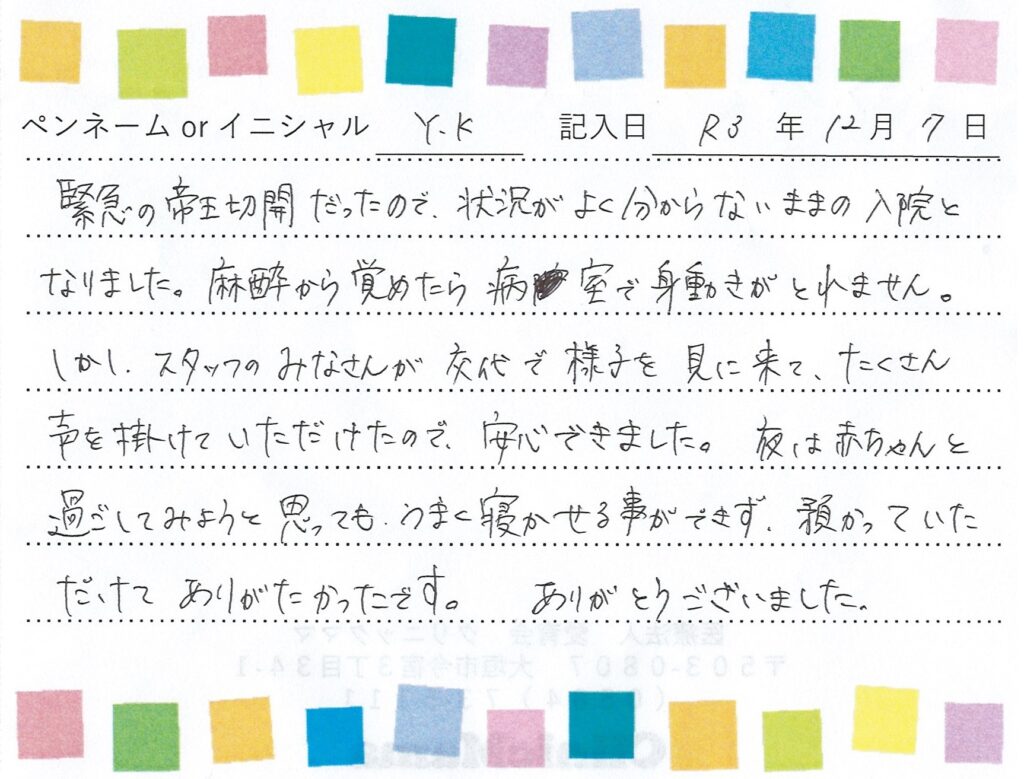 ペンネーム or イニシャル Y.K 記入日 R3 年 12 月 7 日
緊急の帝王切開だったので、状況がよく分からないままの入院と
なりました。麻酔から覚めたら病室で身動きがとれません。
しかし、スタッフのみなさんが交代で様子を見に来て、たくさん
声を掛けていただけたので、安心できました。夜は赤ちゃんと
過ごしてみようと思っても、うまく寝かせる事ができず、預かっていた
だけてありがたかったです。 ありがとうございました。
医療法人 愛育会 クリニックママ
〒503-0807 大垣市今宿3丁目34-1